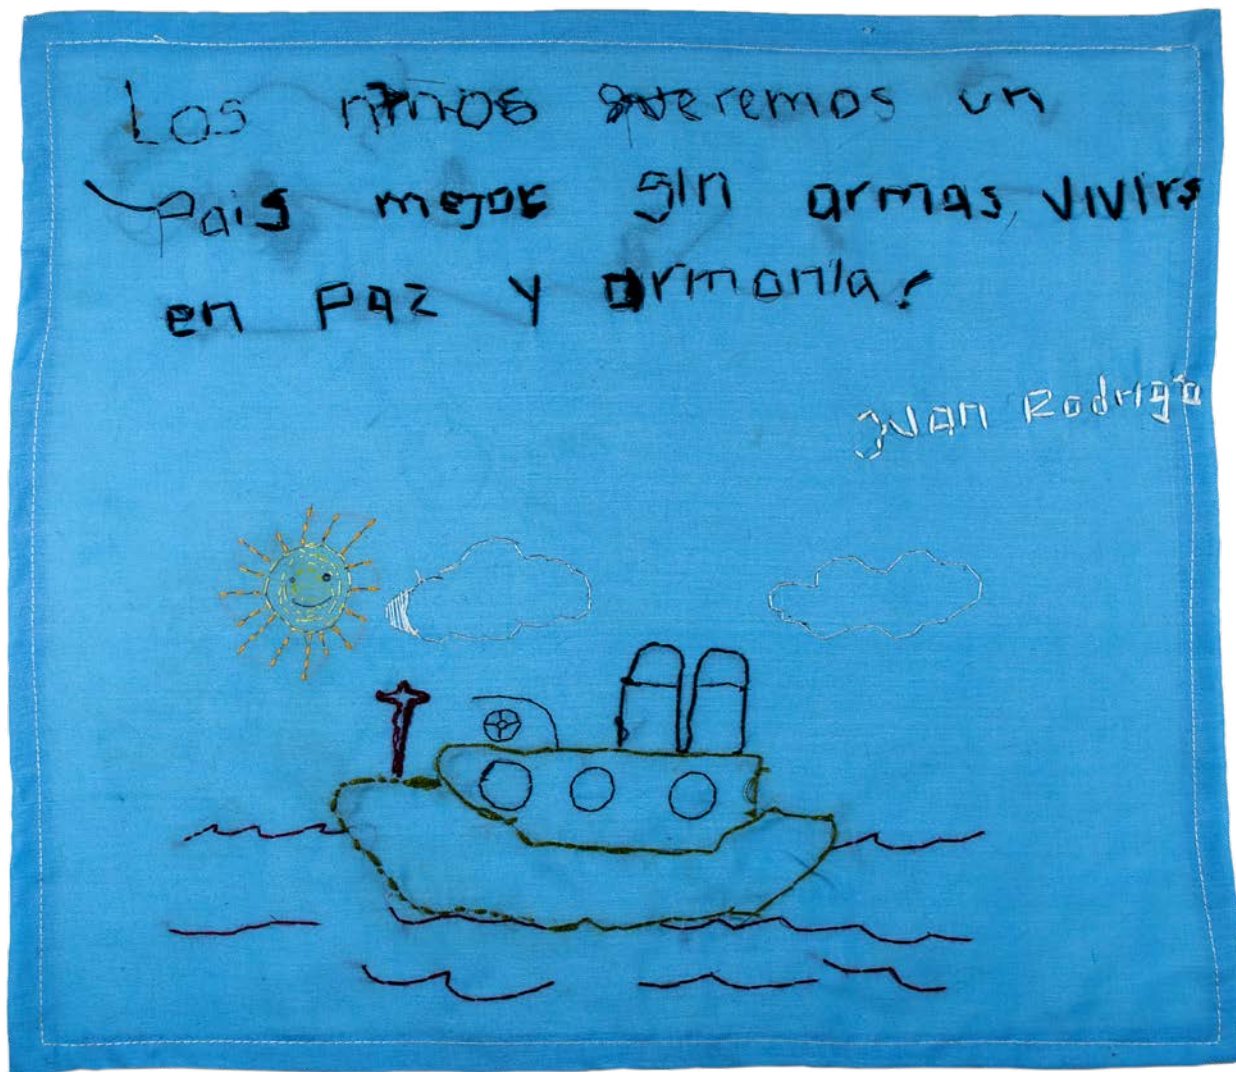 Los niños queremos un
Pais mejor sin armas, vivir
en Paz y armonia!
Juan Rodrigo